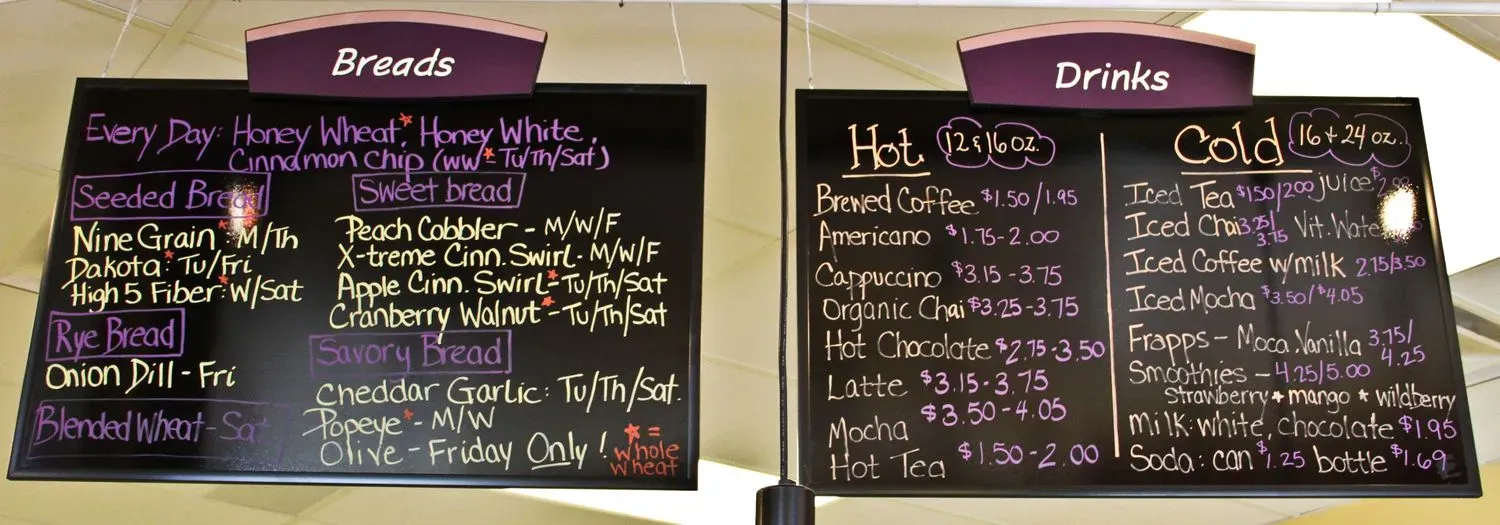 Breads
Every Day: Honey Wheat,* Honey White,
Cinnamon Chip (ww*- Tu/Th/Sat)
Seeded Bread
Nine Grain*: M/Th
Dakota*: Tu/Fri
High 5 Fiber*: W/Sat
Rye Bread
Onion Dill - Fri
Blended Wheat - Sat
Sweet bread
Peach Cobbler - M/W/F
X-treme Cinn. Swirl - M/W/F
Apple Cinn. Swirl*- Tu/Th/Sat
Cranberry Walnut*- Tu/Th/Sat
Savory Bread
Cheddar Garlic: Tu/Th/Sat.
Popeye*- M/W
Olive - Friday Only!
* =
whole
wheat
Drinks
Hot 12 & 16 oz.
Brewed Coffee $1.50/1.95
Americano $1.75-2.00
Cappuccino $3.15-3.75
Organic Chai $3.25-3.75
Hot Chocolate $2.75-3.50
Latte $3.15-3.75
Mocha $3.50-4.05
Hot Tea $1.50-2.00
Cold 16 + 24 oz.
Iced Tea $150/200 juice
Iced Chai 3.25/ Vit. Water
3.75
Iced Coffee w/milk 2.75/3.50
Iced Mocha $3.50/$4.05
Frapps - Moca, Vanilla 3.75/
4.25
Smoothies - 4.25/5.00
strawberry * mango * wildberry
milk: white, chocolate $1.95
Soda: can $1.25 bottle $1.69